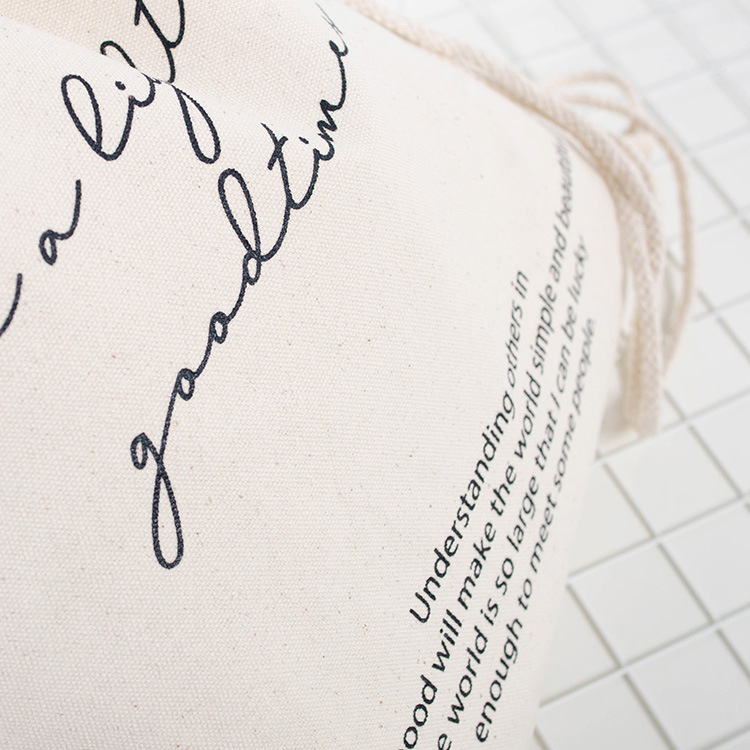 a life
goodtime
Understanding others in
ood will make the world simple and beautif
e world is so large that I can be lucky
enough to meet some people.